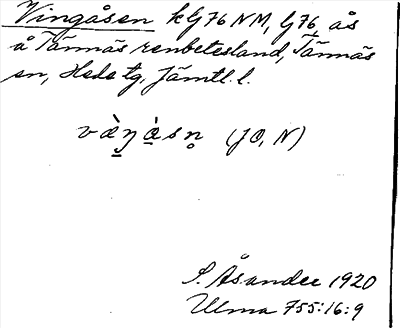 Vingåsen k G76 NM, G76 ås
å Tännäs renbetesland, Tännäs
sn, Hede tg, Jämtl. l.
(JO, N)
S. Åsander 1920
Ulma 755:16:9